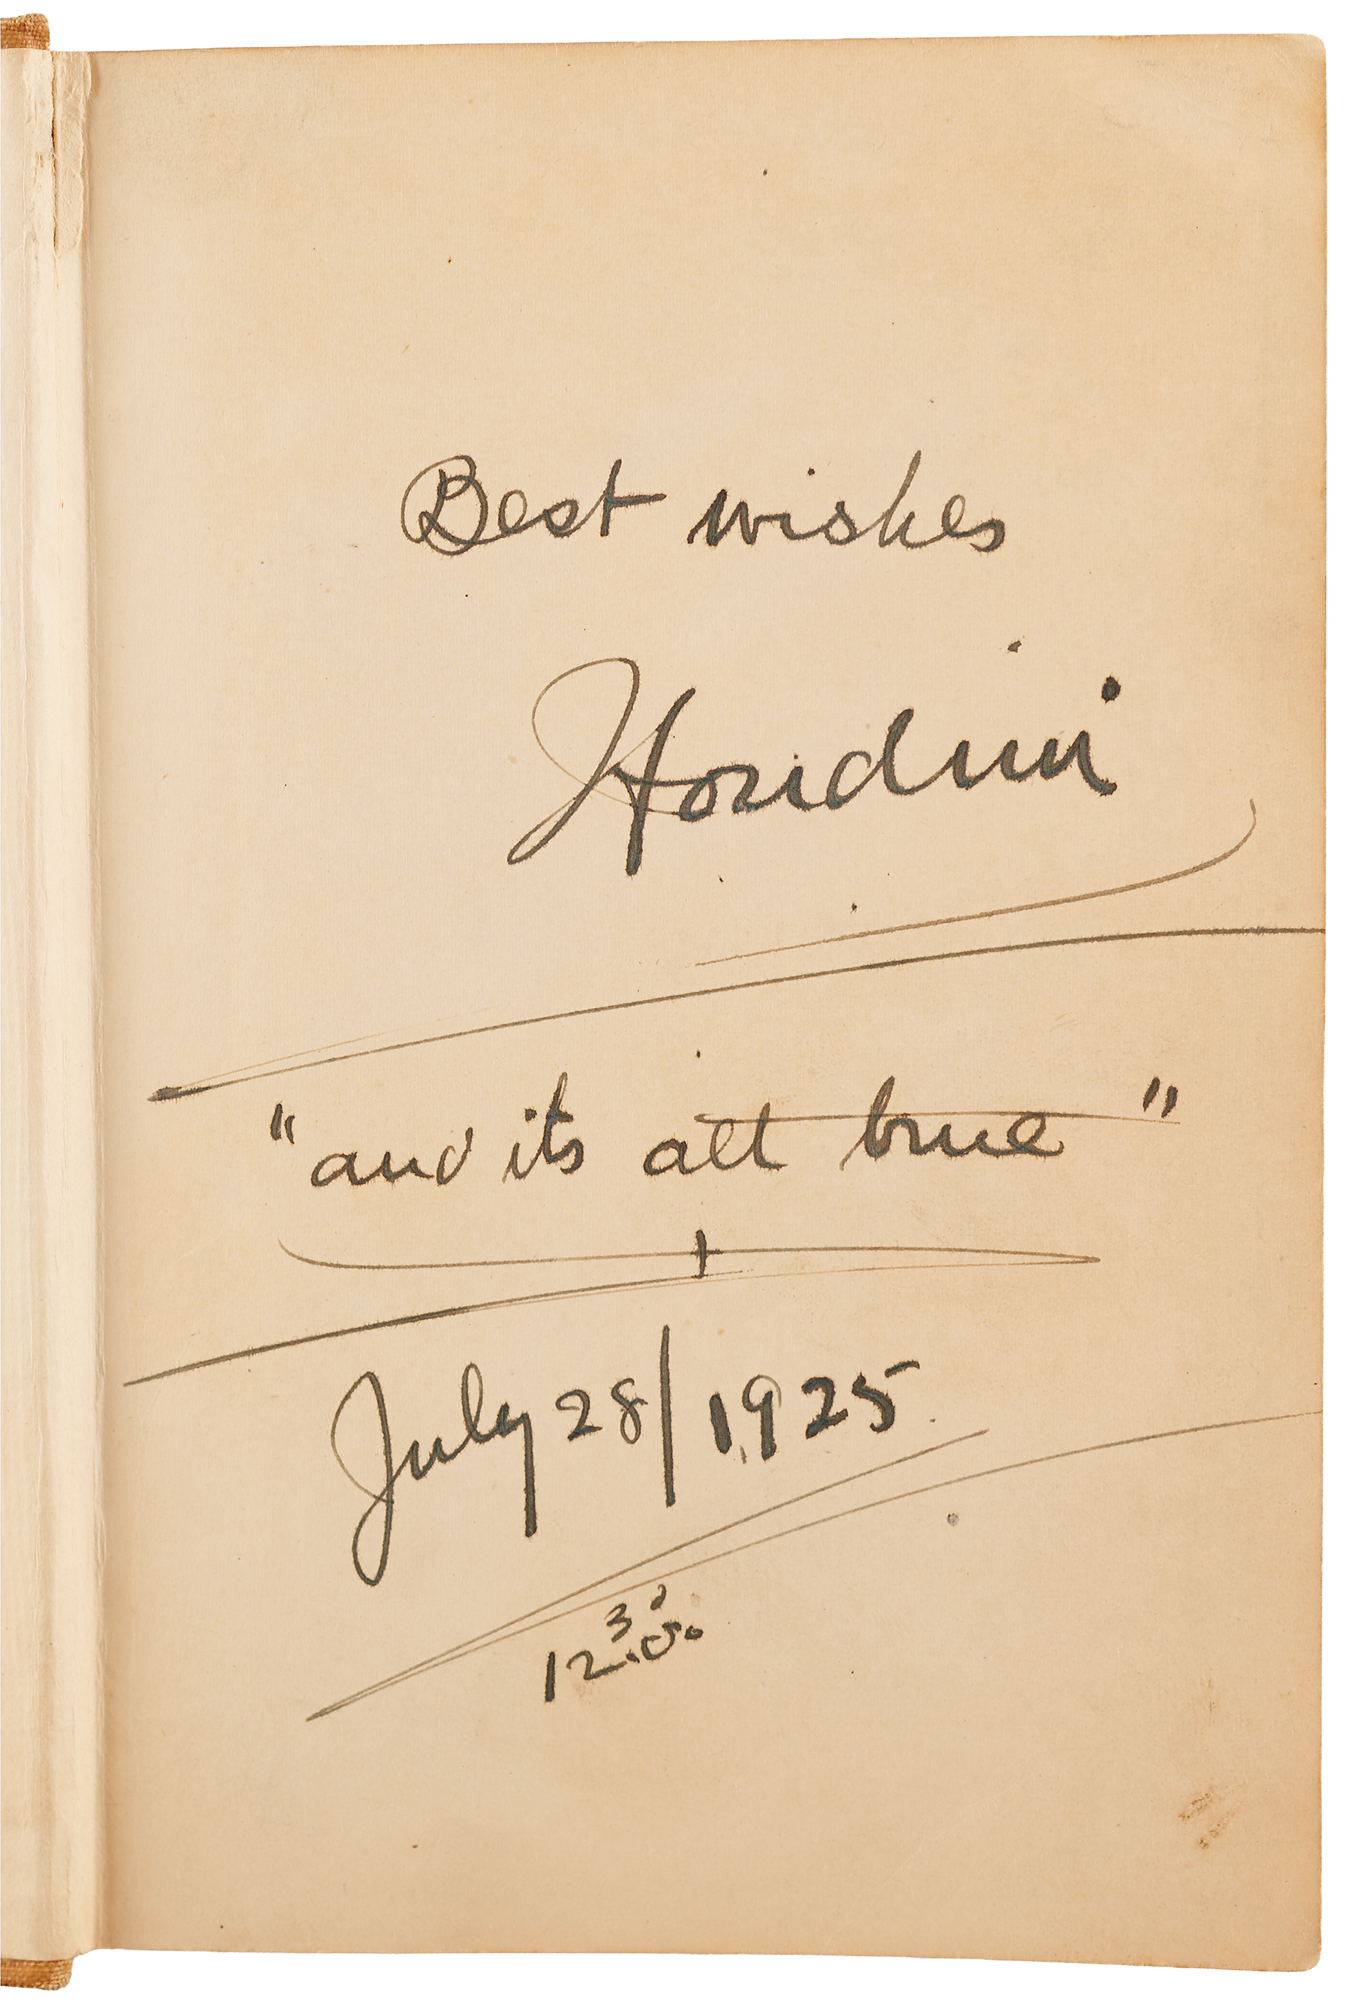 Best wishes
Houdini
"and its all true"
July 28/1925
12.30.